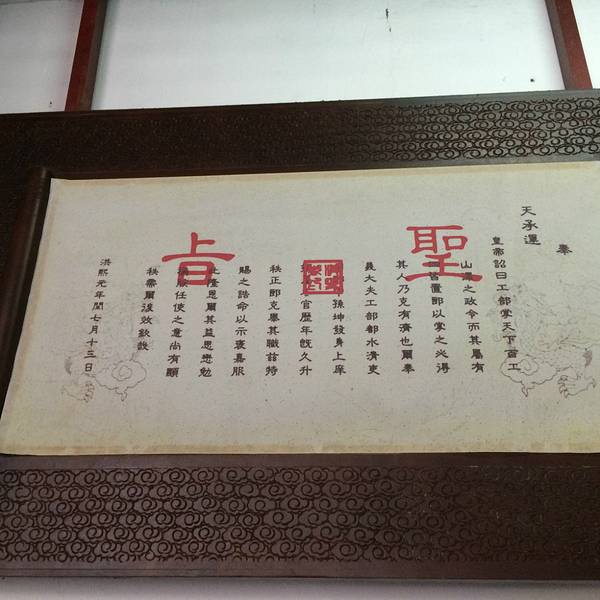 聖旨
奉
天承運
皇帝詔曰工部掌天下百工
山澤之政令而其屬有
皆置郎以掌之必得
其人乃克有濟也爾奉
議大夫工部都水清吏
孫坤發身上庠
官歷年旣久升
秩正郎克舉其職茲特
賜之誥命以示褒嘉服
此隆恩爾其益思懋勉
朕任使之意尚有顯
秩需爾後效欽哉
洪熙元年閏七月十三日